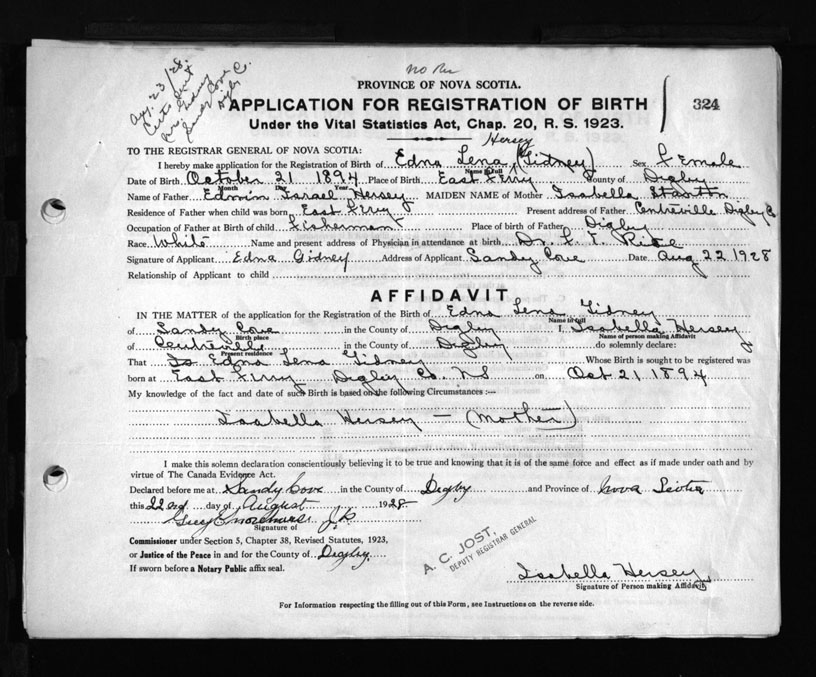 Aug. 23/28.
Certs sent
Mrs Gidney
Sandy Cove
Digby C.
PROVINCE OF NOVA SCOTIA.
APPLICATION FOR REGISTRATION OF BIRTH
324
Under the Vital Statistics Act, Chap. 20, R. S. 1923.
TO THE REGISTRAR GENERAL OF NOVA SCOTIA:
Hersey
I hereby make application for the Registration of Birth of Edna Lena (Gidney) Sex Female
Name in full
Date of Birth October 21 1894 Place of Birth East Ferry County of Digby
Month Day Year
Name of Father Edwin Israel Hersey MAIDEN NAME of Mother Isabella Stanton
Residence of Father when child was born East Ferry Present address of Father Centreville Digby Co
Occupation of Father at Birth of child Fisherman Place of birth of Father Digby
Race White Name and present address of Physician in attendance at birth Dr. F. E. Rice
Signature of Applicant Edna Gidney Address of Applicant Sandy Cove Date Aug 22 1928
Relationship of Applicant to child
AFFIDAVIT
IN THE MATTER of the application for the Registration of the Birth of Edna Lena Gidney
Name in full
of Sandy Cove in the County of Digby I, Isabella Hersey
Birth place Name of person making Affidavit
of Centreville in the County of Digby do solemnly declare:
Present residence
That Is Edna Lena Gidney Whose Birth is sought to be registered was
born at East Ferry Digby Co. NS on Oct 21 1894
My knowledge of the fact and date of such Birth is based on the following Circumstances :—
Isabella Hersey — (Mother)
I make this solemn declaration conscientiously believing it to be true and knowing that it is of the same force and effect as if made under oath and by
virtue of The Canada Evidence Act.
Declared before me at Sandy Cove in the County of Digby and Province of Nova Scotia
this 22nd day of August 1928
Guy E J.P.
Signature of
Commissioner under Section 5, Chapter 38, Revised Statutes, 1923,
or Justice of the Peace in and for the County of Digby.
If sworn before a Notary Public affix seal.
A. C. JOST.
DEPUTY REGISTRAR GENERAL
Isabella Hersey
Signature of Person making Affidavit
For Information respecting the filling out of this Form, see Instructions on the reverse side.